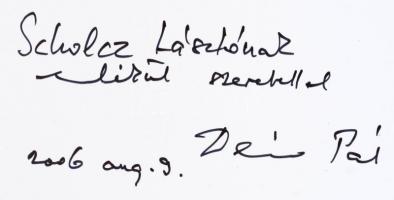 Scholcz Lászlónak
szeretettel
2006 aug. 9. Deim Pál